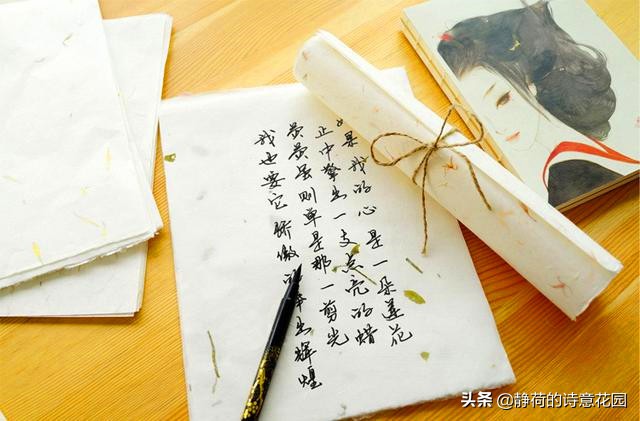 如果我的心是一朵莲花
正中擎出一支点亮的蜡
荧荧虽则单是那一剪光
我也要它骄傲的捧出辉煌
头条 @静荷的诗意花园